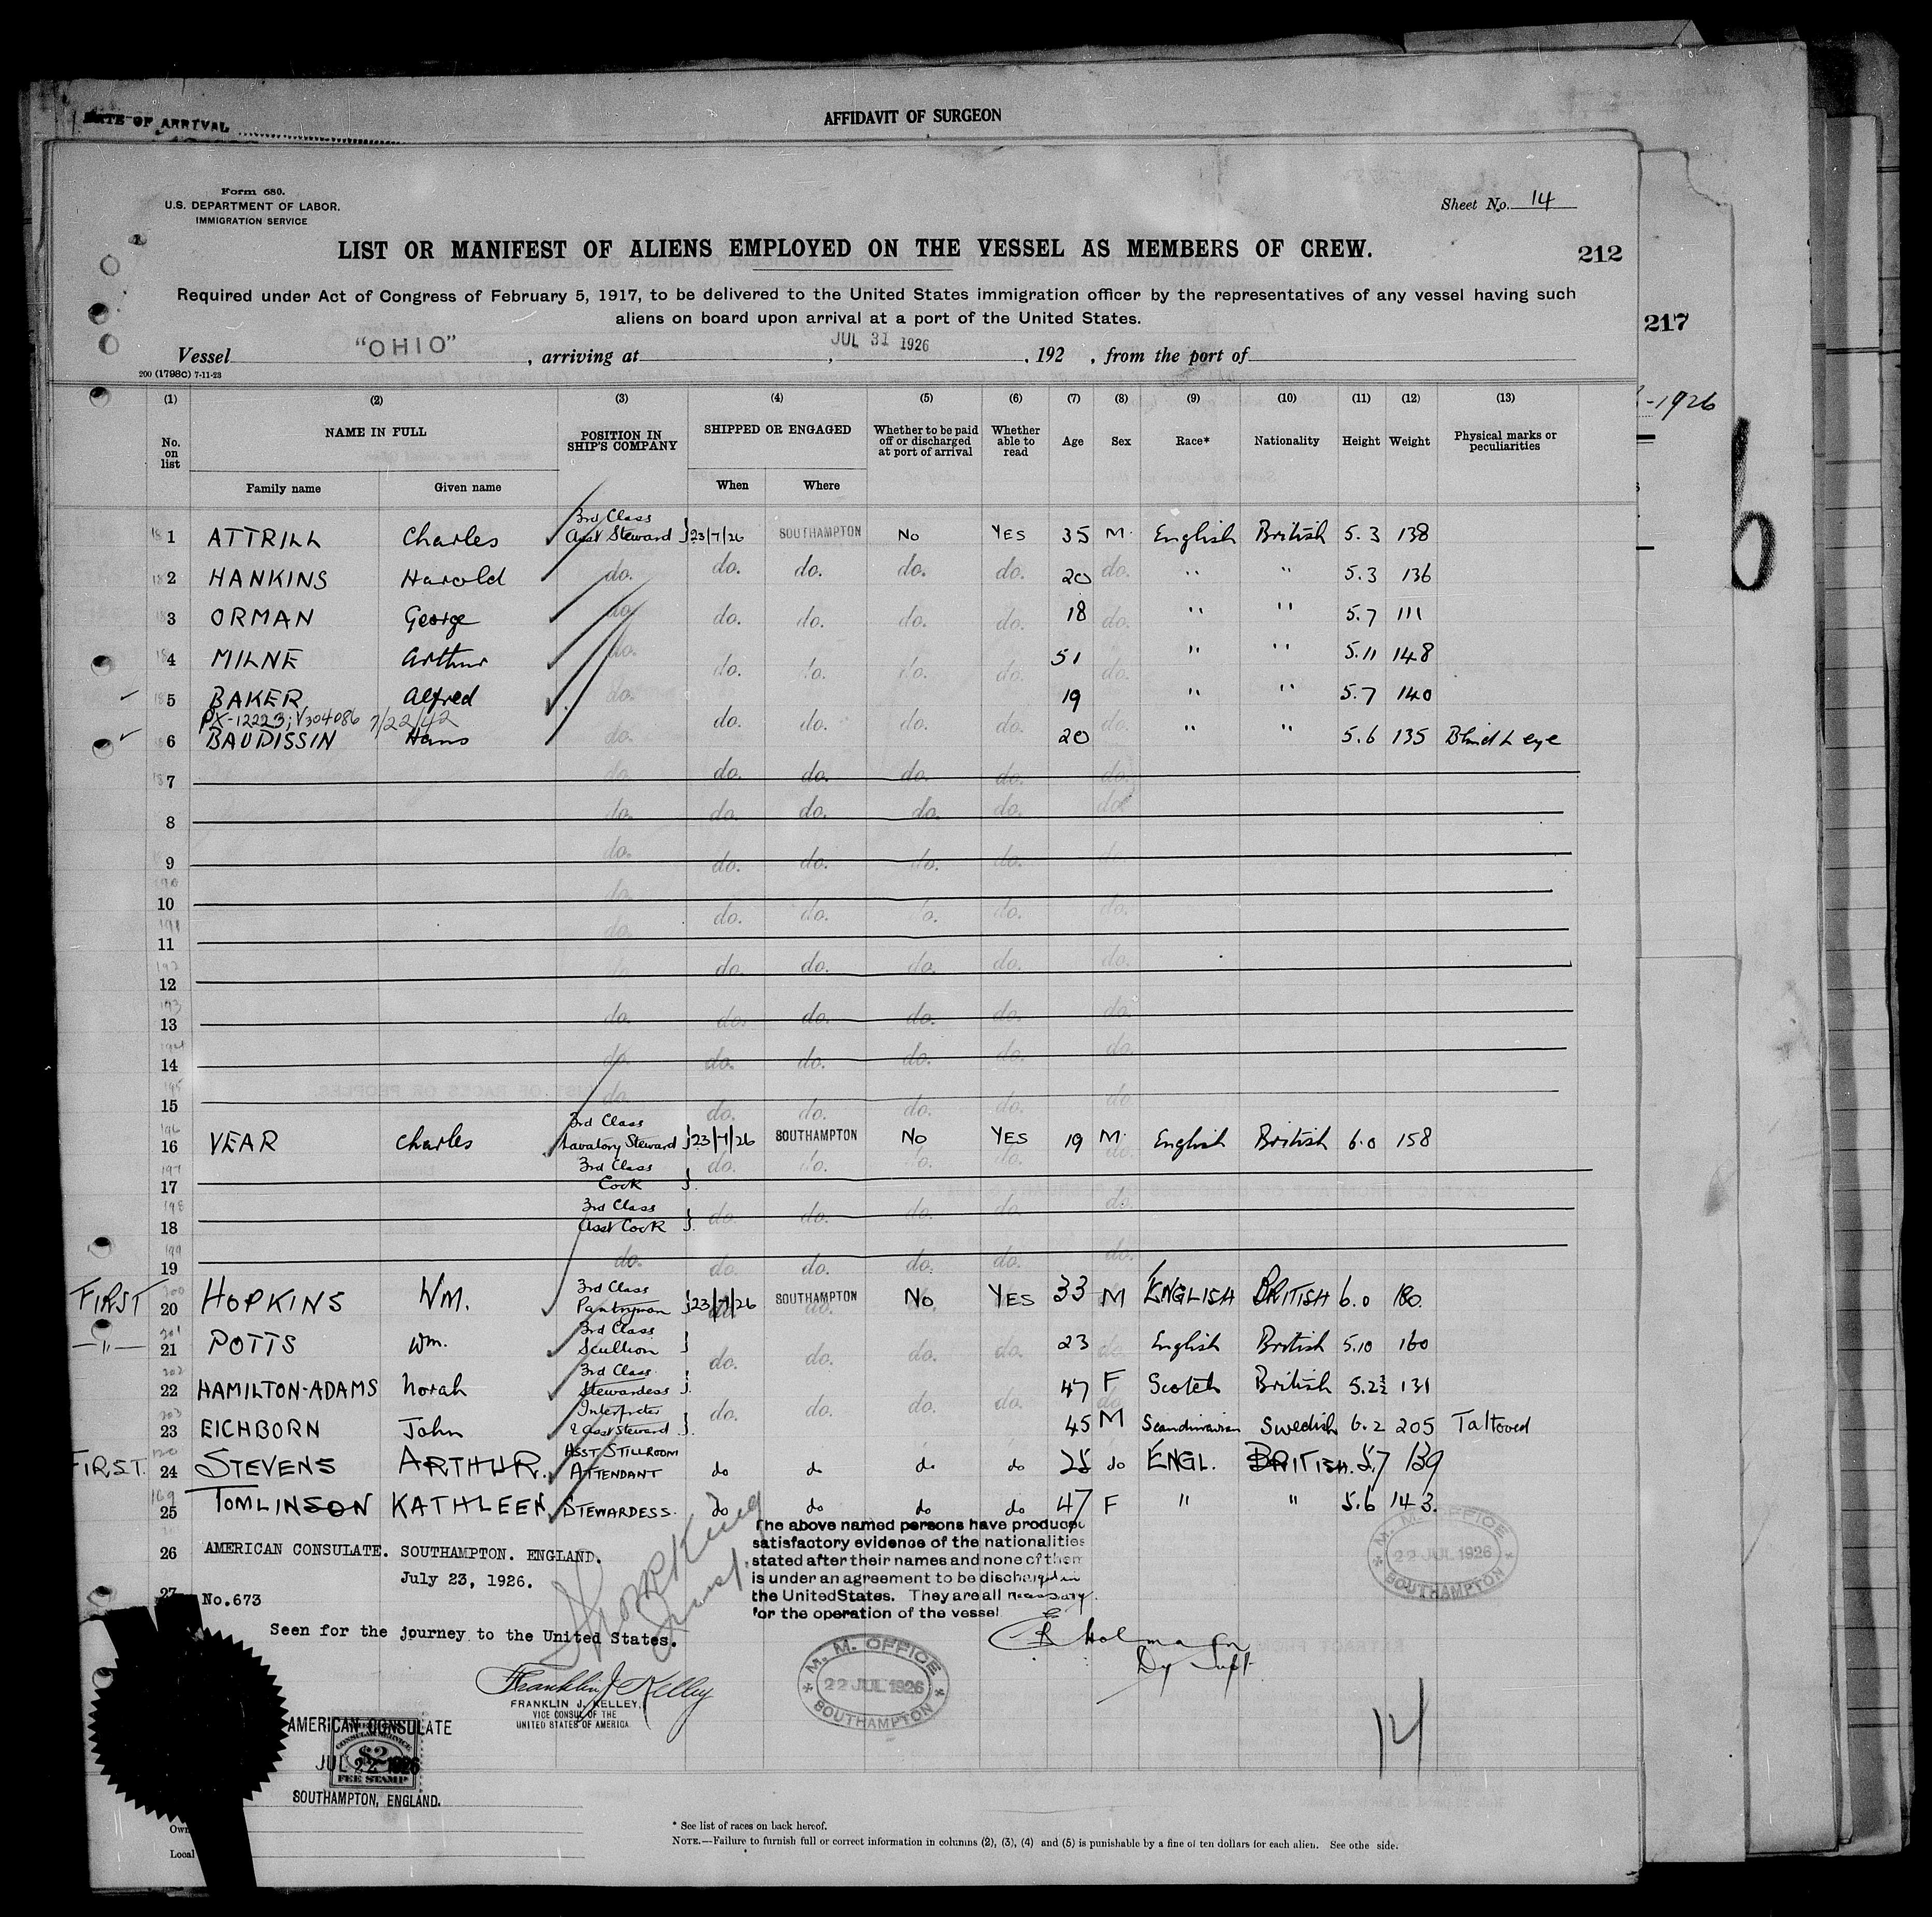 DATE OF ARRIVAL
AFFIDAVIT OF SURGEON
Form 680.
U.S. DEPARTMENT OF LABOR.
IMMIGRATION SERVICE
Sheet No. 14
LIST OR MANIFEST OF ALIENS EMPLOYED ON THE VESSEL AS MEMBERS OF CREW.
212
Required under Act of Congress of February 5, 1917, to be delivered to the United States immigration officer by the representatives of any vessel having such
aliens on board upon arrival at a port of the United States.
217
Vessel "OHIO", arriving at, JUL 31 1926, 192 , from the port of
200 (1798c) 7-11-23
-1926
(1) (2) (3) (4) (5) (6) (7) (8) (9) (10) (11) (12) (13)
No. on list
NAME IN FULL
POSITION IN SHIP'S COMPANY
SHIPPED OR ENGAGED
Whether to be paid off or discharged at port of arrival
Whether able to read
Age
Sex
Race*
Nationality
Height
Weight
Physical marks or peculiarities
Family name Given name When Where
1 ATTRILL Charles 3rd Class Asst Steward 23/7/26 SOUTHAMPTON No YES 35 M. English British 5.3 138
2 HANKINS Harold do. do. do. do. do. 20 do. " " 5.3 136
3 ORMAN George do. do. do. do. do. 18 do. " " 5.7 111
4 MILNE Arthur do. do. do. do. do. 51 do. " " 5.11 148
5 BAKER Alfred do. 19 " " 5.7 140
PX-12223; V304086 7/22/42
6 BAUDISSIN Hans do. do. do. do. do. 20 do. " " 5.6 135 Blind L eye
7 do. do. do. do. do. do.
8 do. do. do. do. do. do.
9 do. do. do. do. do. do.
10 do. do. do. do. do. do.
11 do.
12 do. do. do. do. do. do.
13 do. do. do. do. do. do.
14 do. do. do. do. do. do.
15 do. do. do. do. do. do
16 VEAR Charles 3rd Class Lavatory Steward 23/7/26 SOUTHAMPTON No YES 19 M. English British 6.0 158
17 3rd Class Cook do. do. do. do. do.
18 3rd Class Asst Cook do. do. do. do. do.
19 do. do. do. do. do. do.
FIRST 20 HOPKINS WM. 3rd Class Pantryman 23/7/26 SOUTHAMPTON No YES 33 M ENGLISH BRITISH 6.0 180.
— " — 21 POTTS Wm. 3rd Class Scullion do. do. do. do. 23 do English British 5.10 160
22 HAMILTON-ADAMS Norah 3rd Class Stewardess 47 F Scotch British 5.2½ 131
23 EICHBORN John Interpreter & Asst Steward do. do. do. do. 45 M Scandinavian Swedish 6.2 205 Tattooed
FIRST. 24 STEVENS ARTHUR. ASST STILLROOM ATTENDANT do do do do 25 do ENGL. BRITISH. 5.7 139
25 TOMLINSON KATHLEEN. STEWARDESS. do do do do 47 F " " 5.6 143.
26 AMERICAN CONSULATE. SOUTHAMPTON. ENGLAND.
July 23, 1926.
27 No.673
Seen for the journey to the United States.
The above named persons have produced
satisfactory evidence of the nationalities
stated after their names and none of them
is under an agreement to be discharged in
the United States. They are all necessary
for the operation of the vessel
M. M. OFFICE
22 JUL 1926
SOUTHAMPTON
Franklin J Kelley
FRANKLIN J. KELLEY,
VICE CONSUL OF THE
UNITED STATES OF AMERICA
M. M. OFFICE
22 JUL 1926
SOUTHAMPTON
14
AMERICAN CONSULATE
CONSULAR SERVICE
$2
JUL 22 1926
FEE STAMP
SOUTHAMPTON, ENGLAND.
Local
* See list of races on back hereof.
NOTE.—Failure to furnish full or correct information in columns (2), (3), (4) and (5) is punishable by a fine of ten dollars for each alien. See othe side.